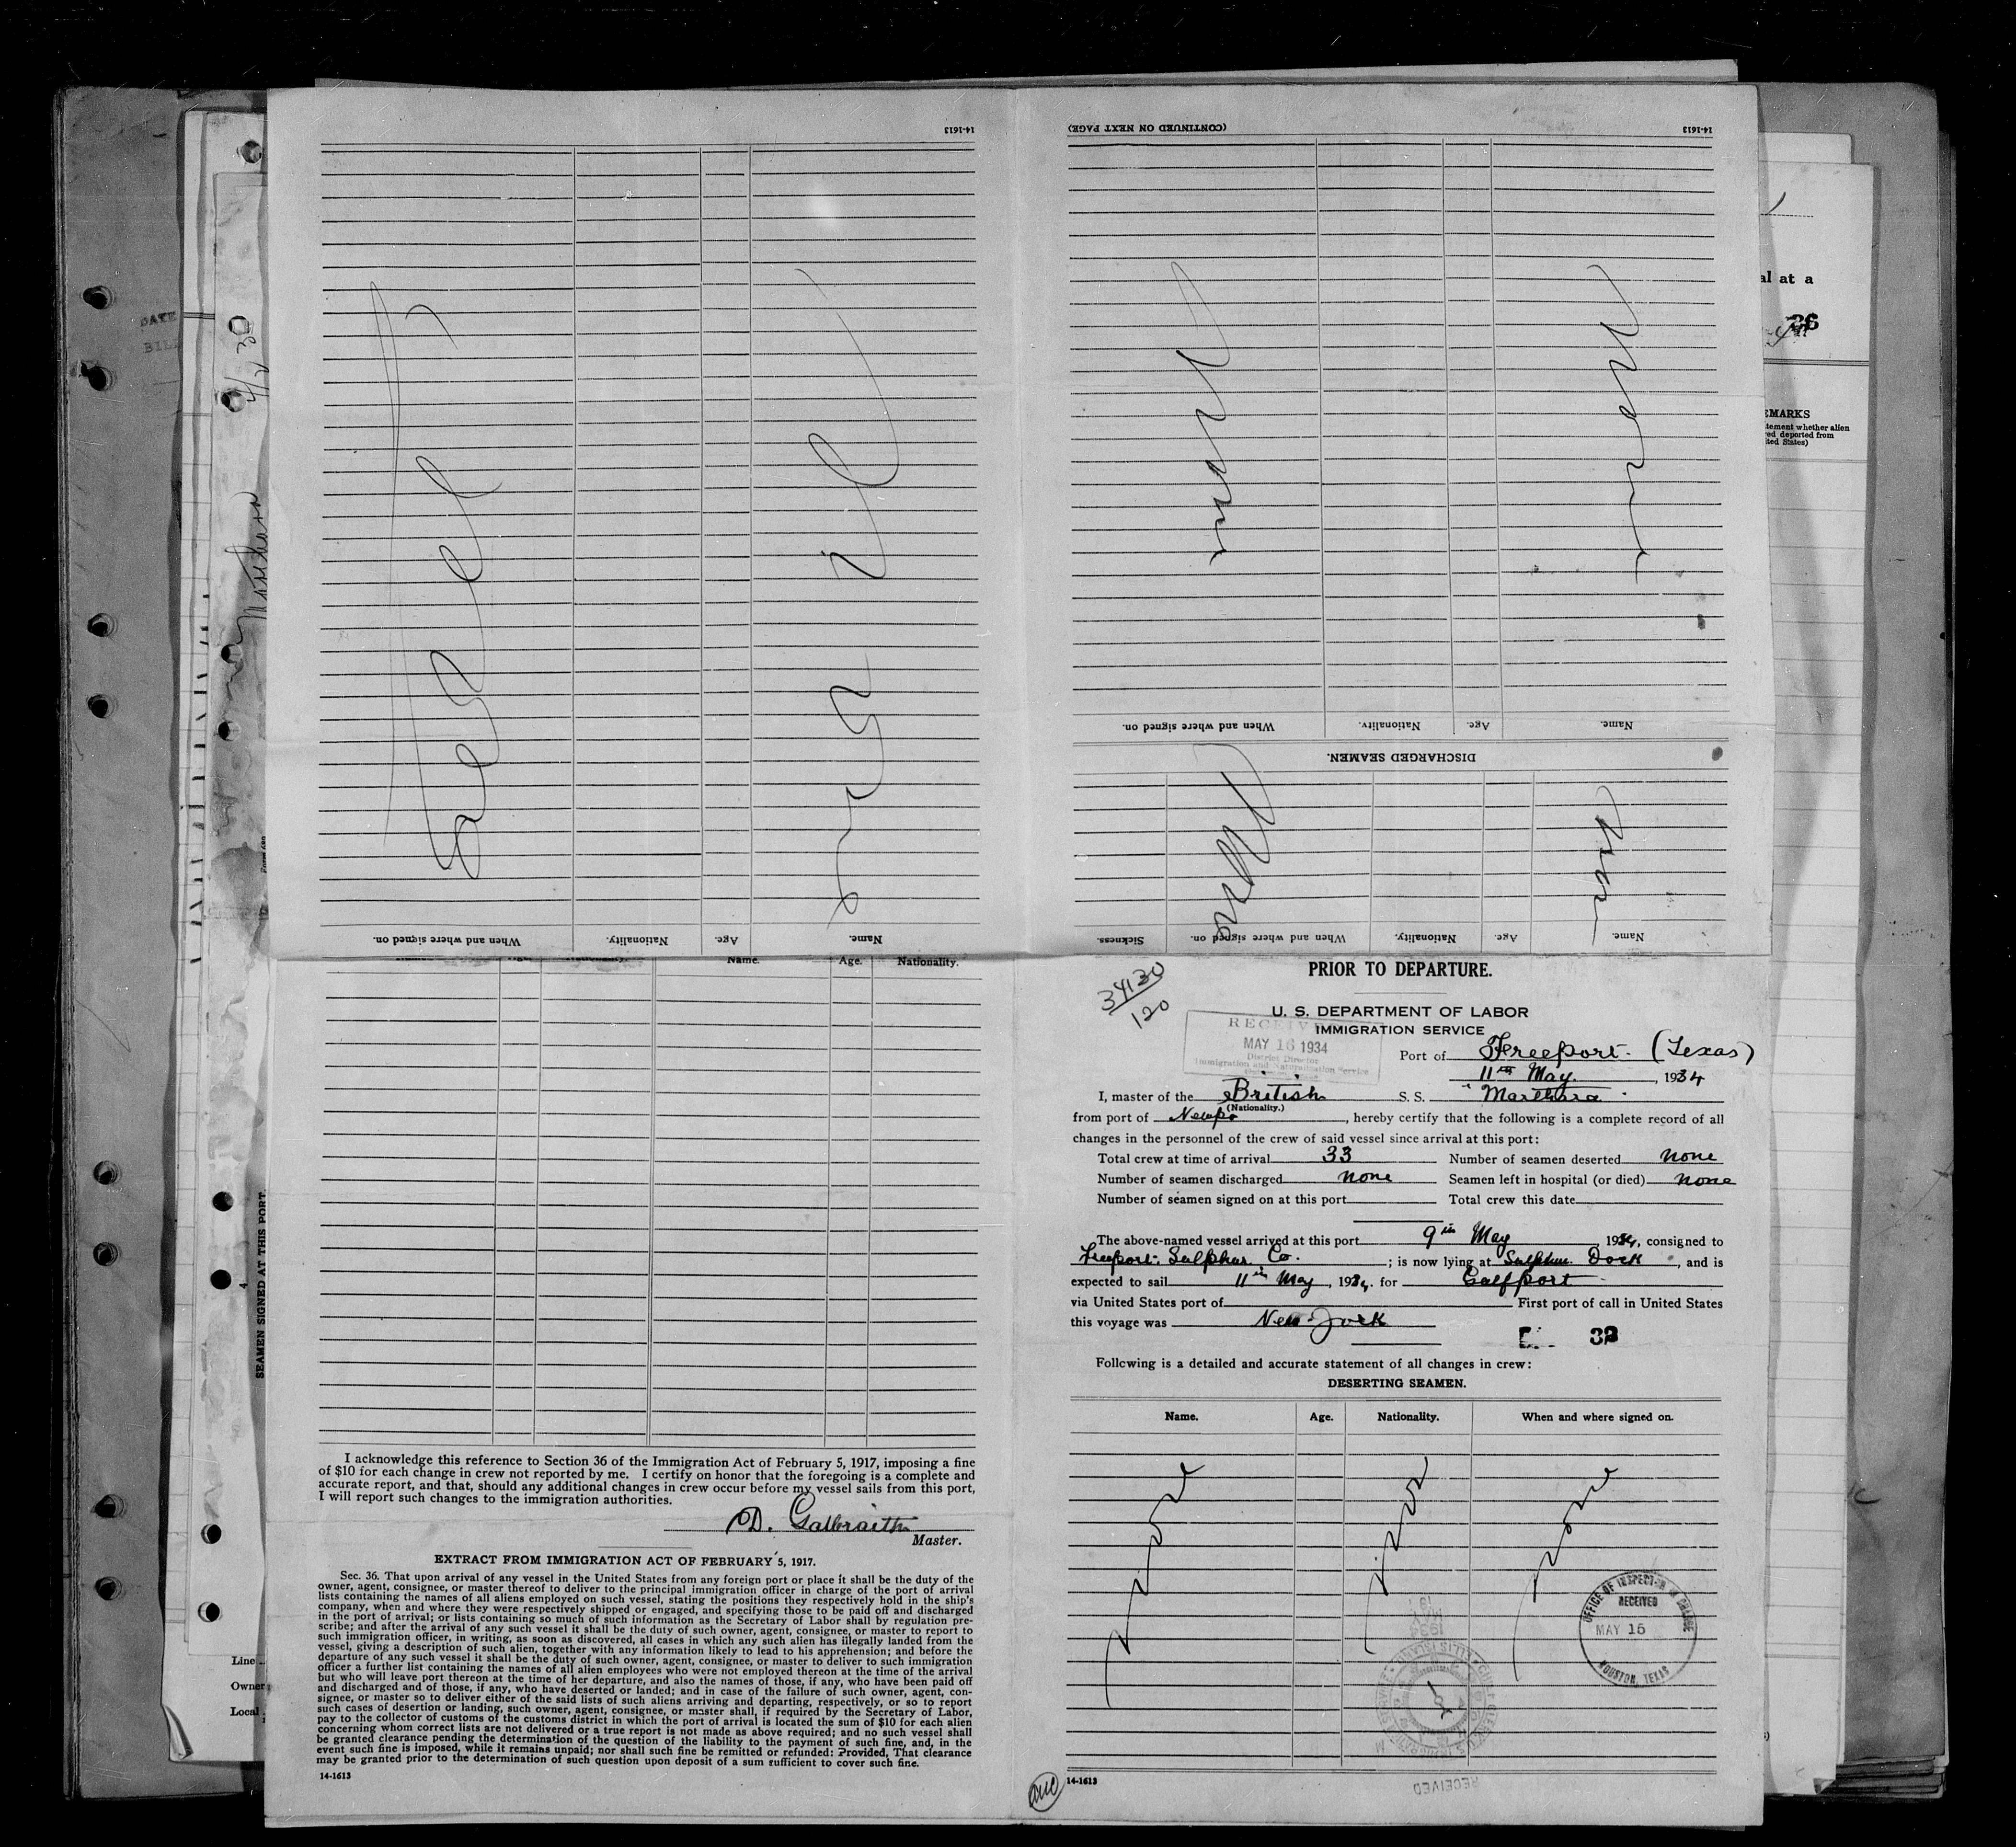 14-1613
(CONTINUED ON NEXT PAGE)
14-1613
When and where signed on.
Nationality.
Age.
Name.
DISCHARGED SEAMEN.
none
none
Sickness.
When and where signed on.
Nationality.
Age.
Name.
When and where signed on.
Nationality.
Age.
Name.
Name.
Age.
Nationality.
SEAMEN SIGNED AT THIS PORT.
4
I acknowledge this reference to Section 36 of the Immigration Act of February 5, 1917, imposing a fine
of $10 for each change in crew not reported by me. I certify on honor that the foregoing is a complete and
accurate report, and that, should any additional changes in crew occur before my vessel sails from this port,
I will report such changes to the immigration authorities.
D. Galbraith
Master.
EXTRACT FROM IMMIGRATION ACT OF FEBRUARY 5, 1917.
Sec. 36. That upon arrival of any vessel in the United States from any foreign port or place it shall be the duty of the
owner, agent, consignee, or master thereof to deliver to the principal immigration officer in charge of the port of arrival
lists containing the names of all aliens employed on such vessel, stating the positions they respectively hold in the ship's
company, when and where they were respectively shipped or engaged, and specifying those to be paid off and discharged
in the port of arrival; or lists containing so much of such information as the Secretary of Labor shall by regulation pre-
scribe; and after the arrival of any such vessel it shall be the duty of such owner, agent, consignee, or master to report to
such immigration officer, in writing, as soon as discovered, all cases in which any such alien has illegally landed from the
vessel, giving a description of such alien, together with any information likely to lead to his apprehension; and before the
departure of any such vessel it shall be the duty of such owner, agent, consignee, or master to deliver to such immigration
officer a further list containing the names of all alien employees who were not employed thereon at the time of the arrival
but who will leave port thereon at the time of her departure, and also the names of those, if any, who have been paid off
and discharged and of those, if any, who have deserted or landed; and in case of the failure of such owner, agent, con-
signee, or master so to deliver either of the said lists of such aliens arriving and departing, respectively, or so to report
such cases of desertion or landing, such owner, agent, consignee, or master shall, if required by the Secretary of Labor,
pay to the collector of customs of the customs district in which the port of arrival is located the sum of $10 for each alien
concerning whom correct lists are not delivered or a true report is not made as above required; and no such vessel shall
be granted clearance pending the determination of the question of the liability to the payment of such fine, and, in the
event such fine is imposed, while it remains unpaid; nor shall such fine be remitted or refunded: Provided, That clearance
may be granted prior to the determination of such question upon deposit of a sum sufficient to cover such fine.
14-1613
34130
120
PRIOR TO DEPARTURE.
U. S. DEPARTMENT OF LABOR
IMMIGRATION SERVICE
RECEIVED
MAY 16 1934
District Director
Immigration and Naturalization Service
Port of Freeport. (Texas)
11th May, 1934
I, master of the British S. S. "Marthara"
(Nationality.)
from port of Newpo, hereby certify that the following is a complete record of all
changes in the personnel of the crew of said vessel since arrival at this port:
Total crew at time of arrival 33 Number of seamen deserted none
Number of seamen discharged none Seamen left in hospital (or died) none
Number of seamen signed on at this port Total crew this date
The above-named vessel arrived at this port 9th May, 1934, consigned to
Freeport Sulphur Co.; is now lying at Sulphur Dock, and is
expected to sail 11th May, 1934, for Gulfport
via United States port of First port of call in United States
this voyage was New York
Following is a detailed and accurate statement of all changes in crew:
DESERTING SEAMEN.
Name. Age. Nationality. When and where signed on.
none none none
OFFICE OF INSPECTOR IN CHARGE
RECEIVED
MAY 15
HOUSTON, TEXAS
RECEIVED
14-1613
DATE
BILL
Line
Owner
Local
al at a
26
EMARKS